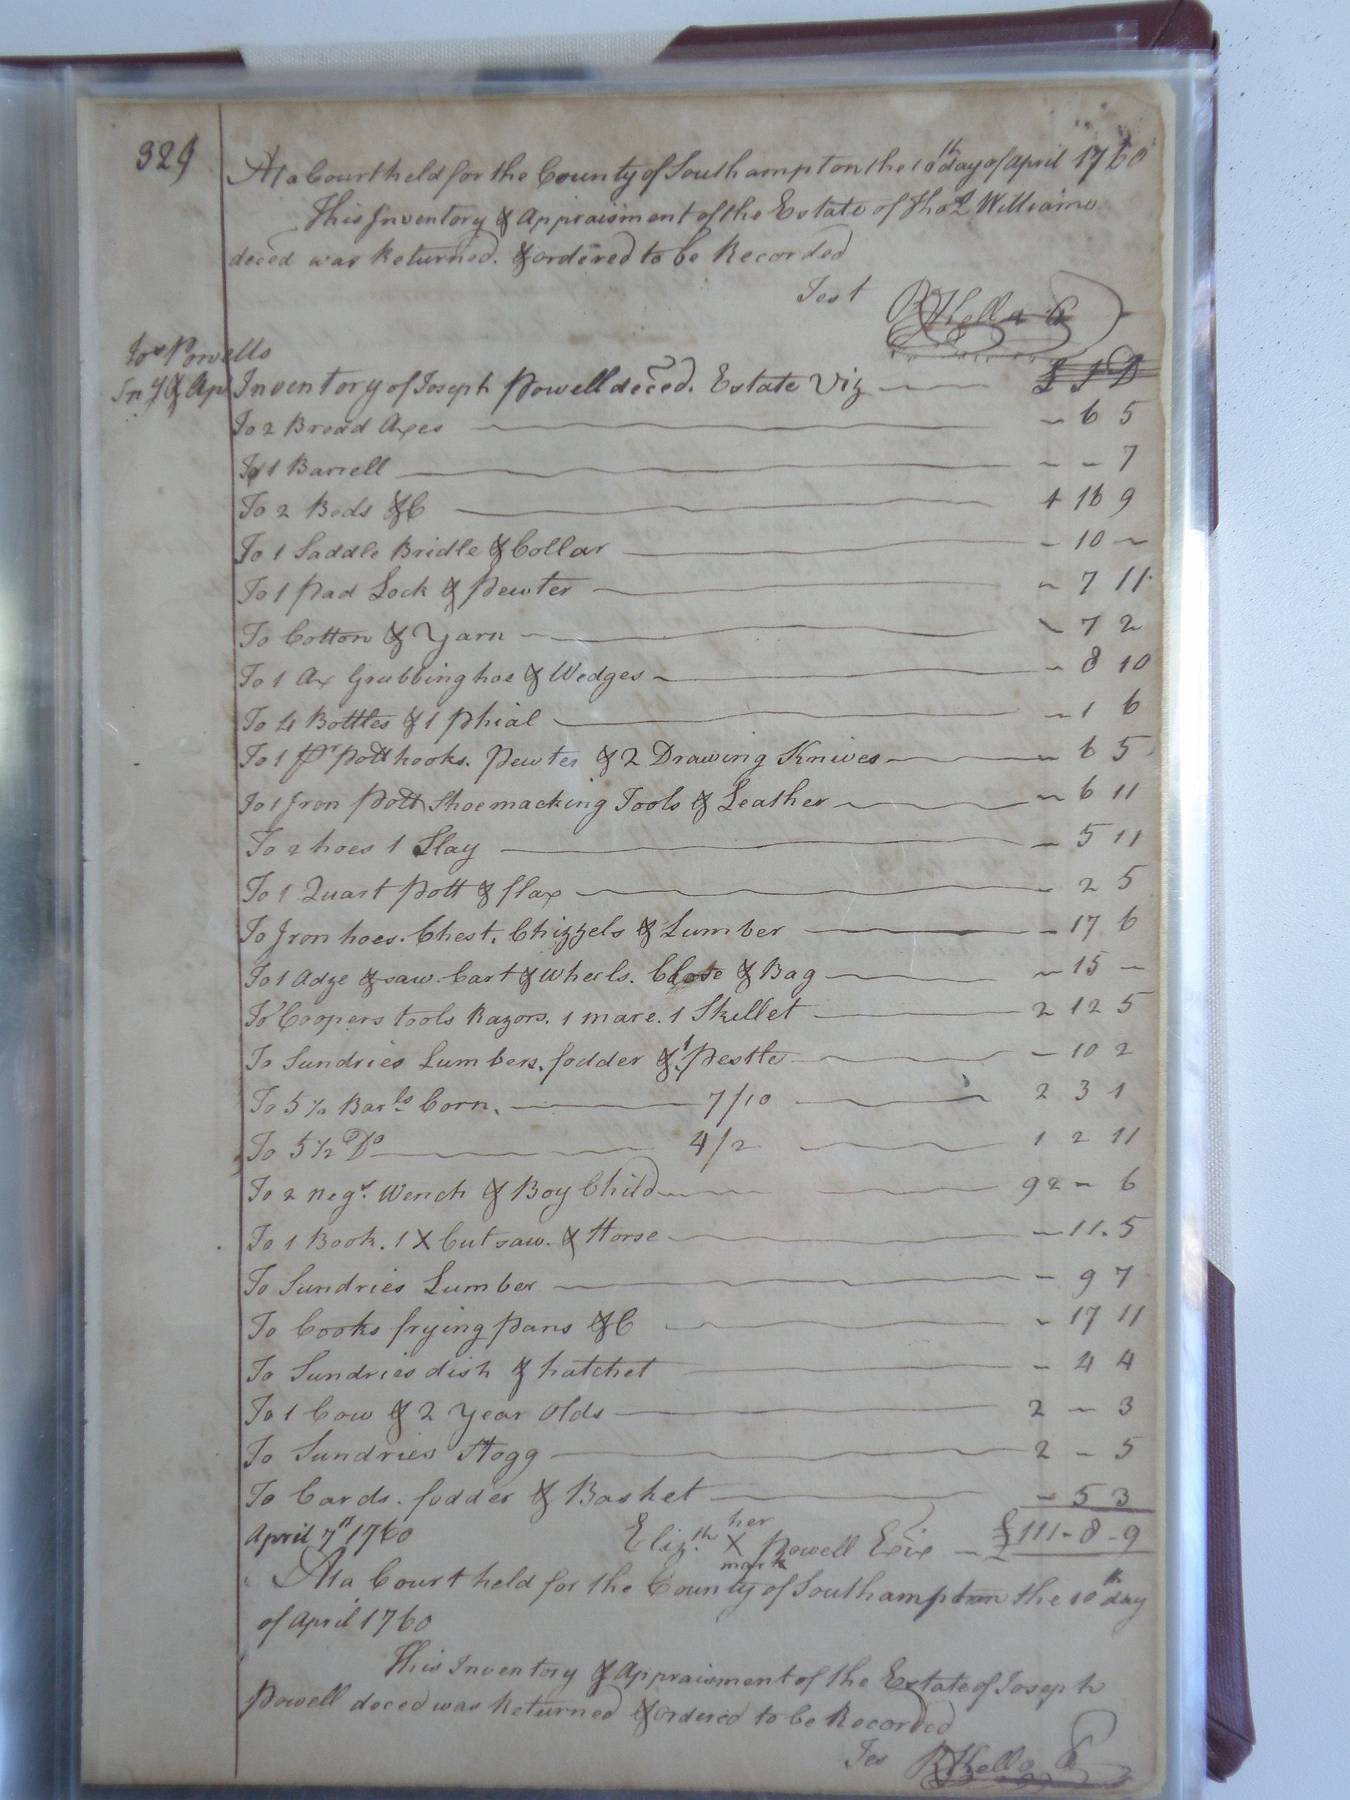 329
At a Court held for the County of Southampton the 10th day of April 1760
This Inventory & Appraisment of the Estate of Thos Williams
deced was Returned. & ordered to be Recorded
Test RKello
Jos Powells
Inv & Apr
Inventory of Joseph Powell deced. Estate Viz £ S D
To 2 Broad Axes - 6 5
To 1 Barrell - - 7
To 2 Beds &C 4 18 9
To 1 Saddle Bridle & Collar - 10 -
To 1 Pad Lock & Pewter - 7 11
To Cotton & Yarn - 7 2
To 1 Ax Grubbing hoe & Wedges - 8 10
To 4 Bottles & 1 Phial - 1 6
To 1 pr Potthooks. Pewter & 2 Drawing Knives - 6 5
To 1 Iron Pott Shoemacking Tools & Leather - 6 11
To 2 hoes 1 Slay - 5 11
To 1 Quart Pott & flax - 2 5
To Iron hoes. Chest. Chizzels & Lumber - 17 6
To 1 Adze & saw. Cart & Wheels. & Bag - 15 -
To Coopers tools Razors. 1 mare. 1 Skillet 2 12 5
To Sundries Lumbers. fodder & 1 Pestle - 10 2
To 5½ Barls Corn. 7/10 2 3 1
To 5½ Do 4/2 1 2 11
To 2 negs. Wench & Boy Child 92 - 6
To 1 Book. 1 X Cut saw. & Horse - 11. 5
To Sundries Lumber - 9 7
To Cooks frying pans &C - 17 11
To Sundries dish & hatchet - 4 4
To 1 Cow & 2 Year Olds 2 - 3
To Sundries Hogg 2 - 5
To Cards. fodder & Basket - 5 3
April 7th 1760 Elizth her X mark Powell Exix £111-8-9
At a Court held for the County of Southampton the 10th day
of April 1760
This Inventory & Appraisment of the Estate of Joseph
Powell deced was Returned & ordered to be Recorded
Tes RKello